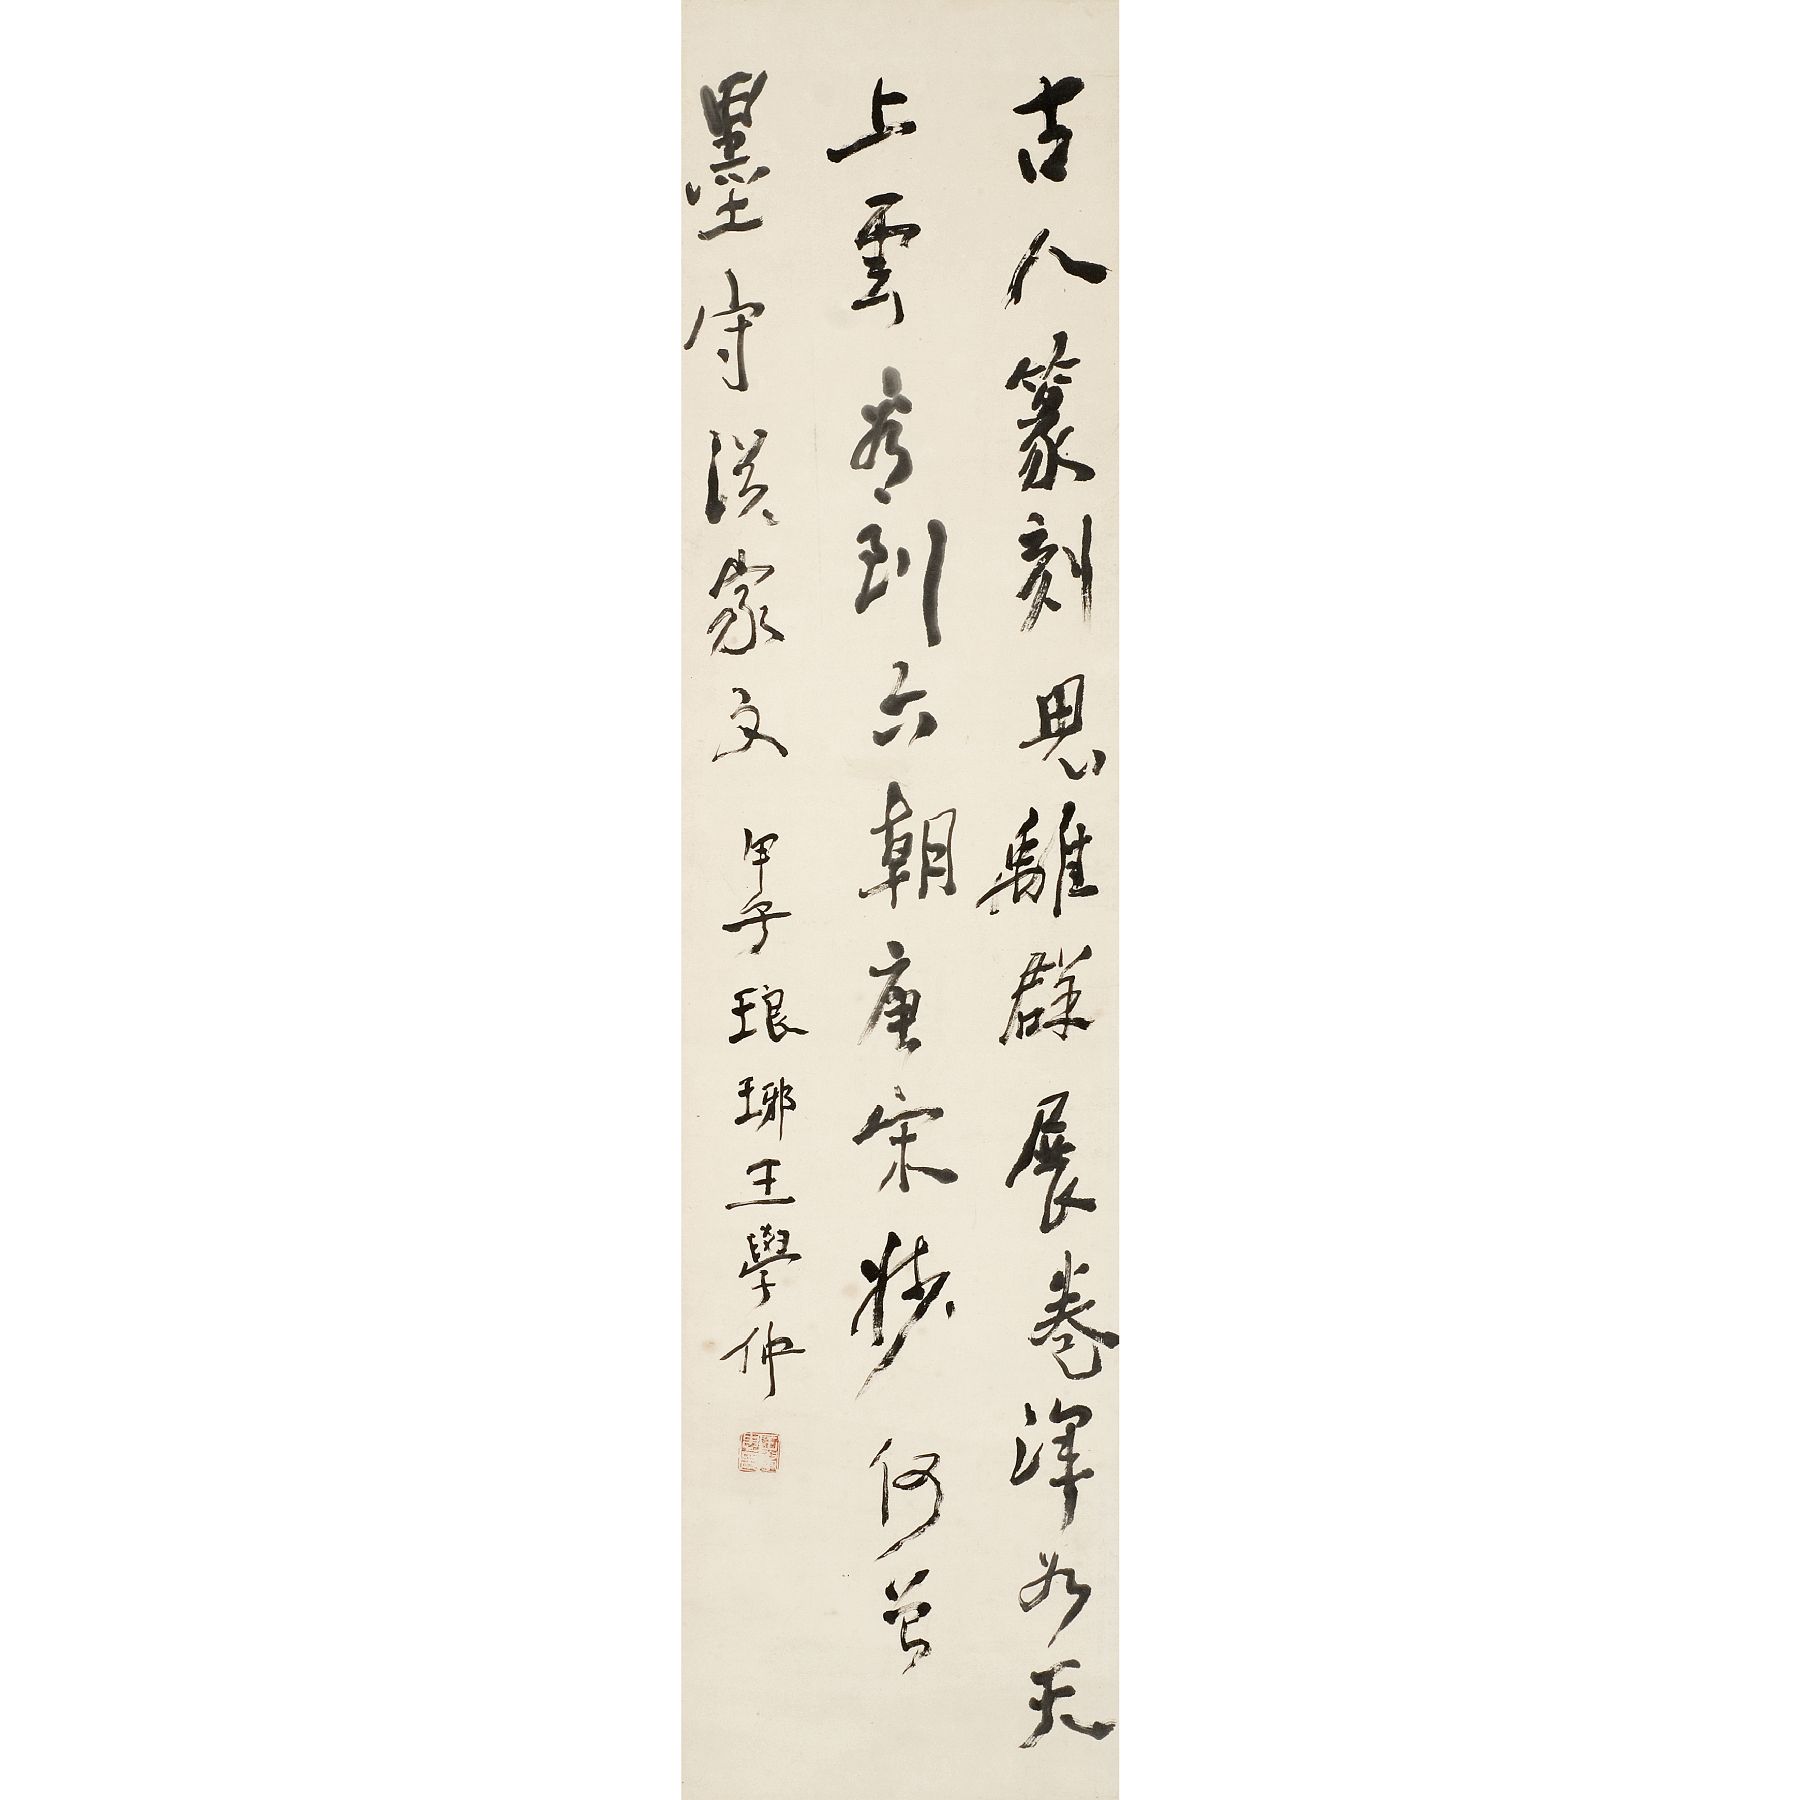 古人篆刻思離群展卷渾如天
上雲看到六朝唐宋妙何曾
墨守漢家文 甲子琅琊王學仲